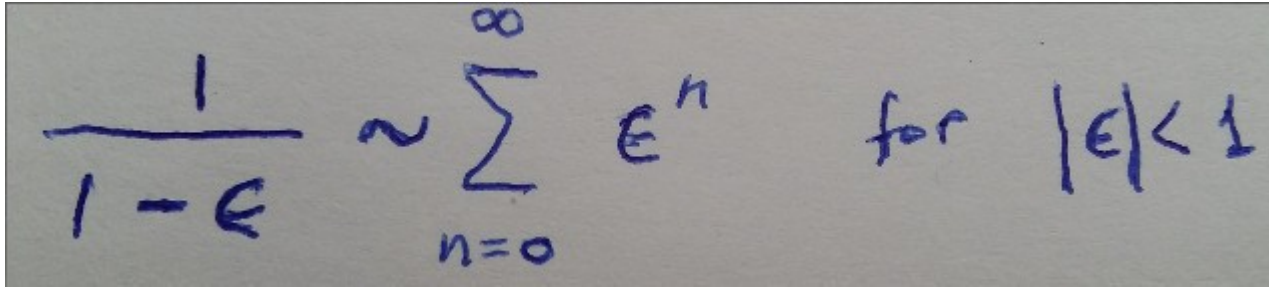 \frac{1}{1-\epsilon} \sim \sum_{n=0}^{\infty} \epsilon^n for |\epsilon| < 1